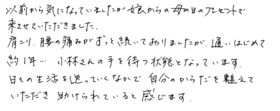 以前から気になっていましたが娘からの母の日のプレゼントで
来させていただきました。
肩こり、腰の痛みがずっと続いておりましたが、通いはじめて
約1年… 小林さんの手を待つ状態となっています。
日々の生活を送っていくなかで自分のからだを整えて
いただき助けられていると感じます。